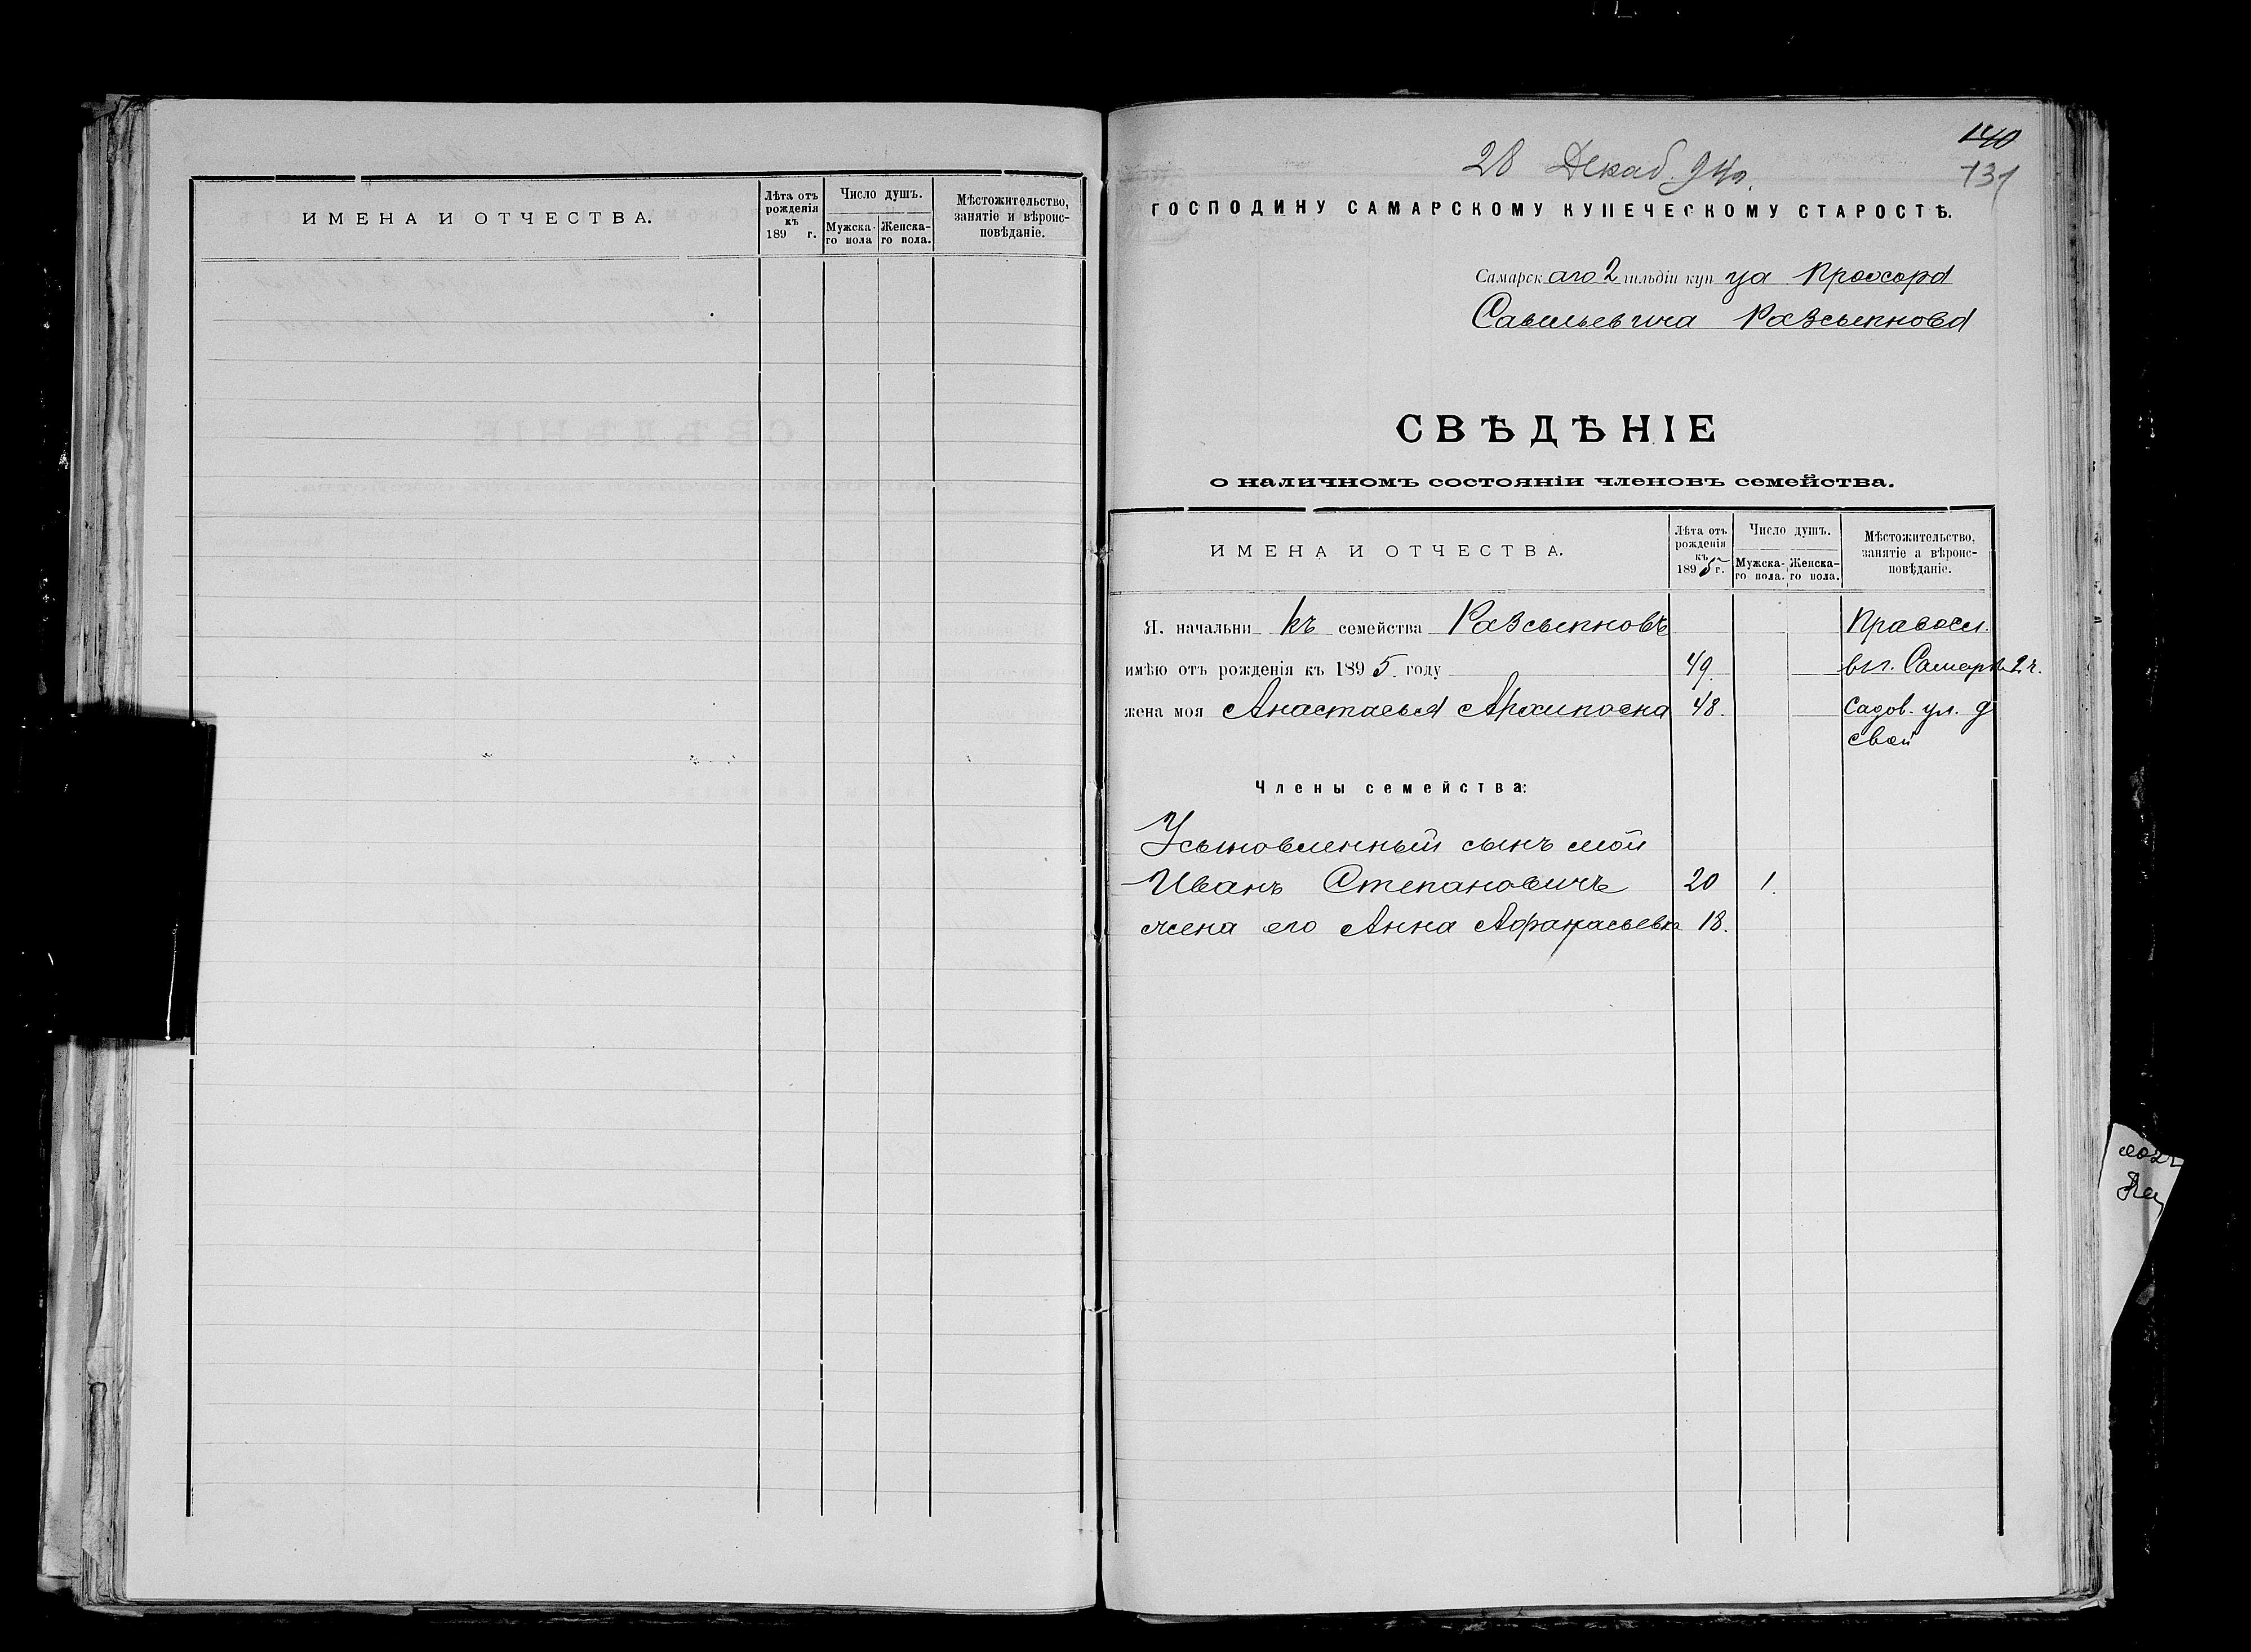 ИМЕНА И ОТЧЕСТВА.
Лѣта отъ рожденія къ 189 г.
Число душъ.
Мужска-го пола
Женска-го пола.
Мѣстожительство, занятіе и вѣроис-повѣданіе.
140
131
28 Декаб. 94 г.
ГОСПОДИНУ САМАРСКОМУ КУПЕЧЕСКОМУ СТАРОСТѢ.
Самарскаго 2 гильдіи купца Прохора
Савельевича Разсыпнова
СВѢДѢНІЕ
о наличномъ состояніи членовъ семейства.
ИМЕНА И ОТЧЕСТВА.
Лѣта отъ рожденія къ 1895 г.
Число душъ.
Мужска-го пола.
Женска-го пола.
Мѣстожительство, занятіе а вѣроис-повѣданіе.
Я. начальникъ семейства Разсыпновъ Правосл.
имѣю отъ рожденія къ 1895. году 49. в г. Самарѣ 2 ч.
жена моя Анастасья Архиповна 48. Садов. ул. д
свой
Члены семейства:
Усыновленный сынъ мой
Иванъ Степановичъ 20 1.
жена его Анна Афанасьевна 18.